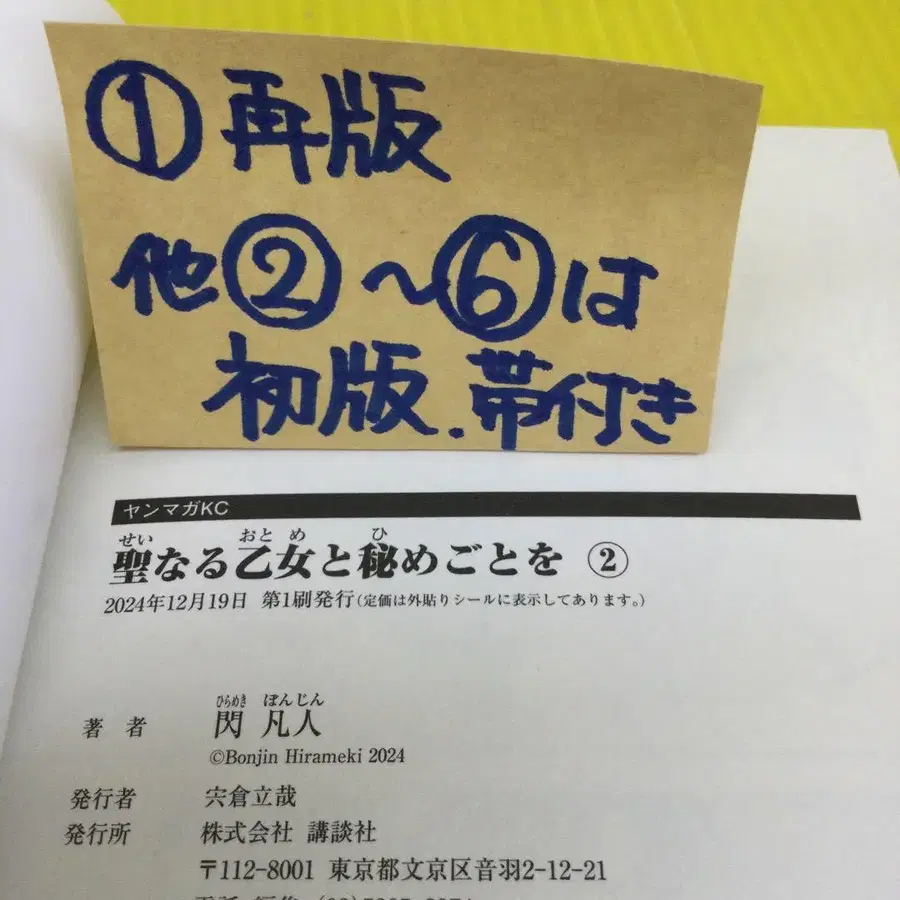 ①再版
他②～⑥は
初版.帯付き
ヤンマガKC
せい おとめ ひ
聖なる乙女と秘めごとを ②
2024年12月19日 第1刷発行(定価は外貼りシールに表示してあります。)
ひらめき ぼんじん
著者 閃 凡人
©Bonjin Hirameki 2024
発行者 宍倉立哉
発行所 株式会社 講談社
〒112-8001 東京都文京区音羽2-12-21